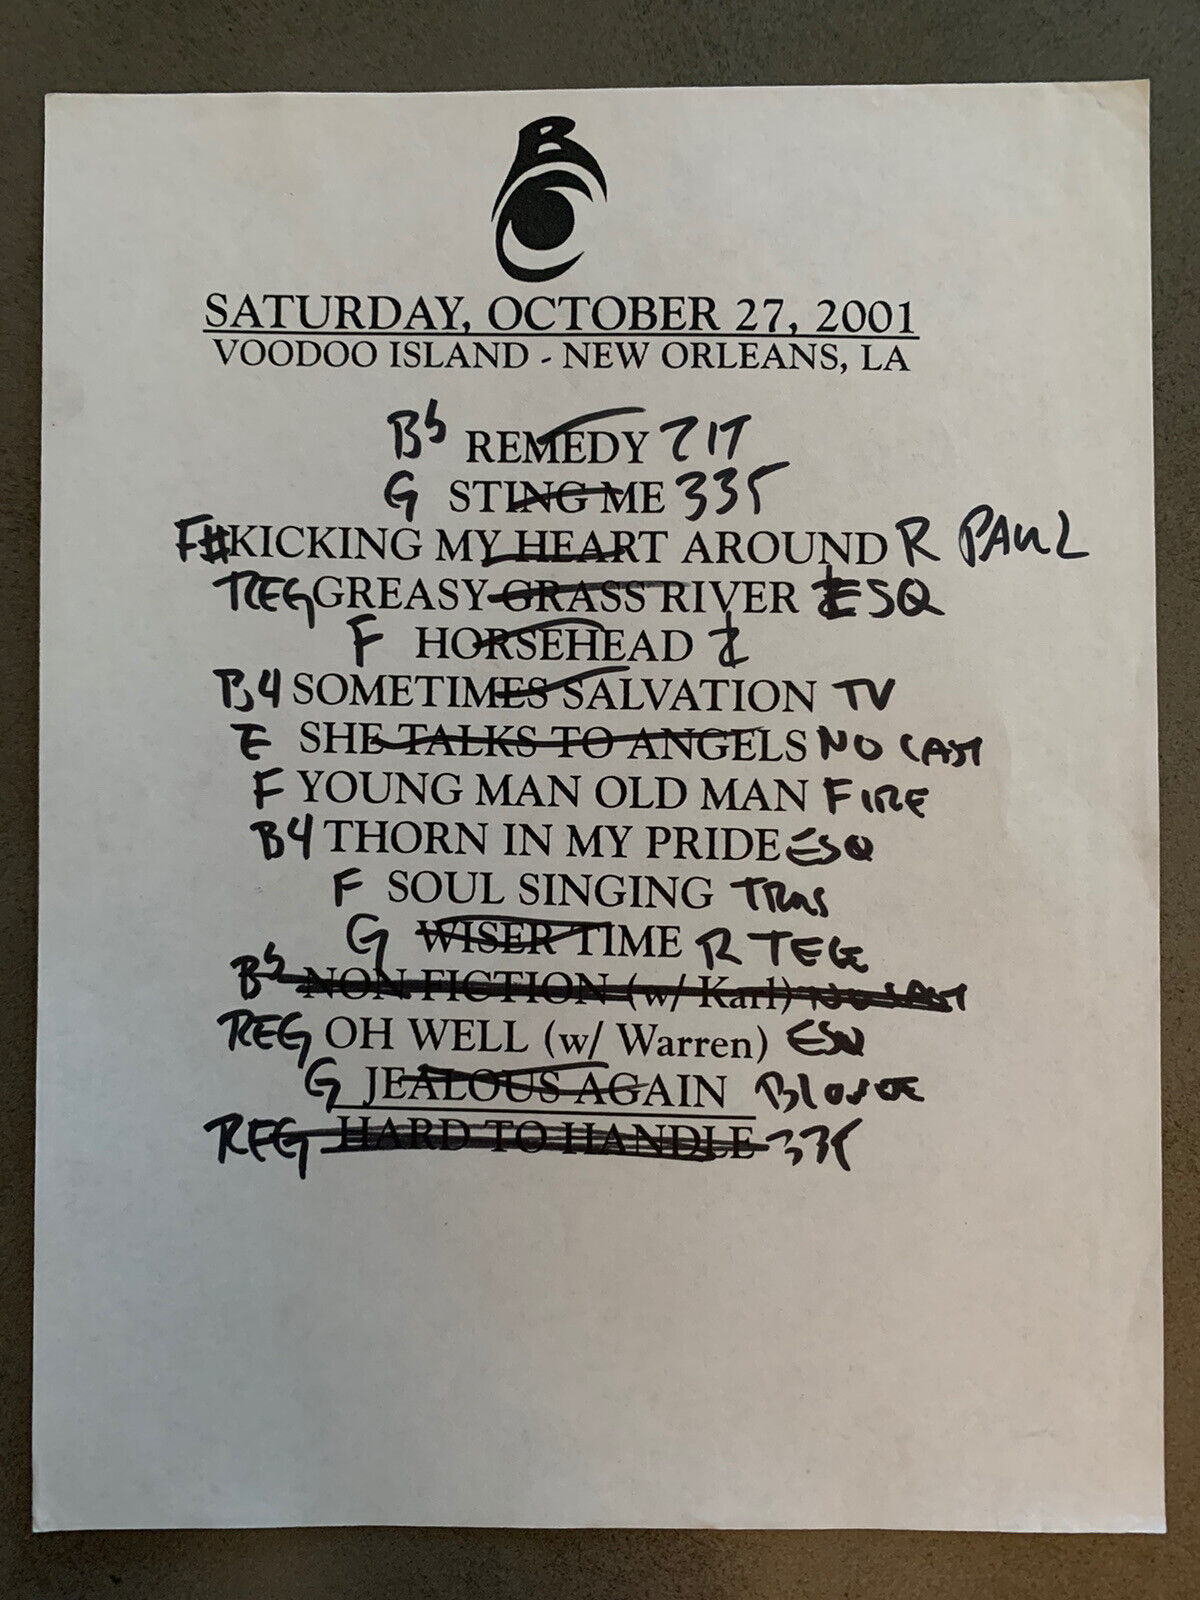 B
SATURDAY, OCTOBER 27, 2001
VOODOO ISLAND - NEW ORLEANS, LA
B5 REMEDY ZIT
G STING ME 335
F# KICKING MY HEART AROUND R PAUL
REG GREASY GRASS RIVER ESQ
F HORSEHEAD Z
B4 SOMETIMES SALVATION TV
E SHE TALKS TO ANGELS NO CAST
F YOUNG MAN OLD MAN FIRE
B4 THORN IN MY PRIDE ESQ
F SOUL SINGING
G WISER TIME R TELE
B5 NON FICTION (w/ Karl) NO CAST
REG OH WELL (w/ Warren) ESQ
G JEALOUS AGAIN
REG HARD TO HANDLE 335